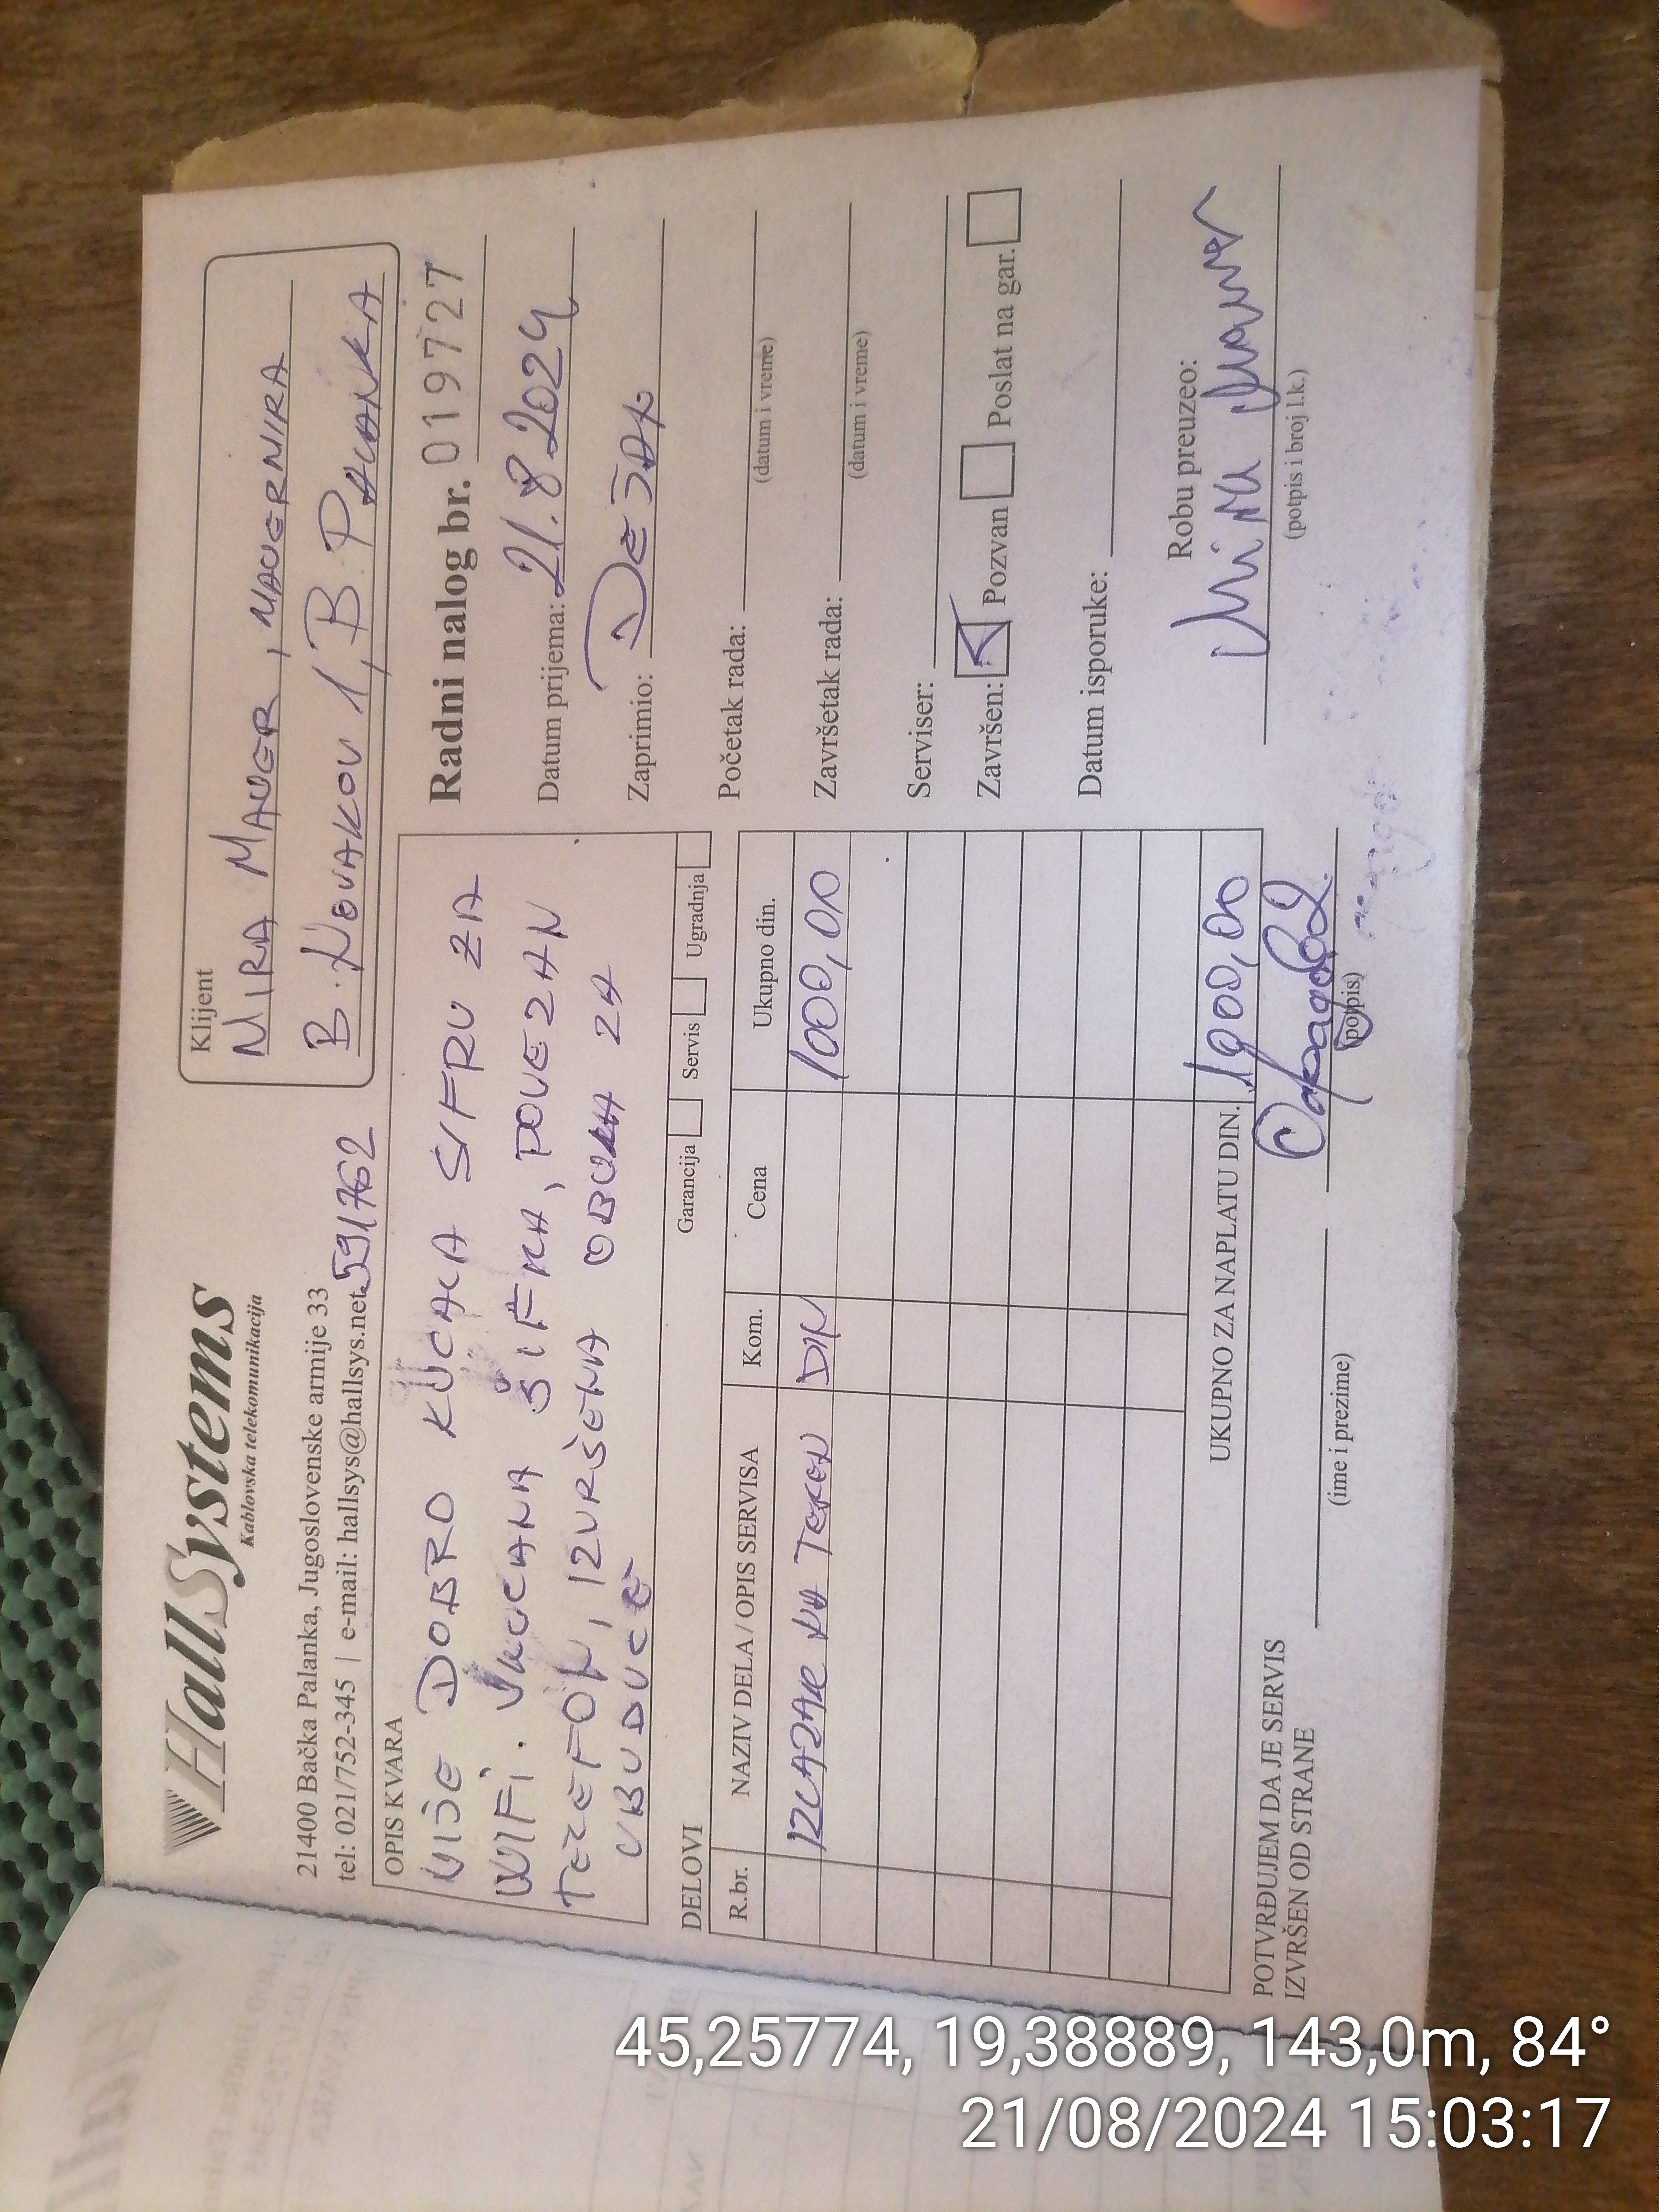 HallSystems
Kablovska telekomunikacija
21400 Bačka Palanka, Jugoslovenske armije 33
tel: 021/752-345 | e-mail: hallsys@hallsys.net
591762
Klijent
MIRA MAUGER, MAUGERMIRA
B. NOVAKOV 1, B. PALANKA
OPIS KVARA
NIJE DOBRO KUCALA SIFRU ZA
WIFI. UKUCANA ŠIFRA, POVEZAN
TELEFON, IZVRŠENA OBUKA ZA
UBUDUĆE
Radni nalog br. 019727
Datum prijema: 21.8.2024
Zaprimio: DEJAN
Početak rada:
(datum i vreme)
Završetak rada:
(datum i vreme)
Serviser:
Završen: Pozvan Poslat na gar.
Datum isporuke:
Robu preuzeo:
(potpis i broj l.k.)
DELOVI
Garancija Servis Ugradnja
R.br. NAZIV DELA / OPIS SERVISA Kom. Cena Ukupno din.
IZLAZAK NA TEREN DIN 1000,00
UKUPNO ZA NAPLATU DIN. 1000,00
POTVRĐUJEM DA JE SERVIS
IZVRŠEN OD STRANE
(ime i prezime)
(potpis)
45,25774, 19,38889, 143,0m, 84°
21/08/2024 15:03:17